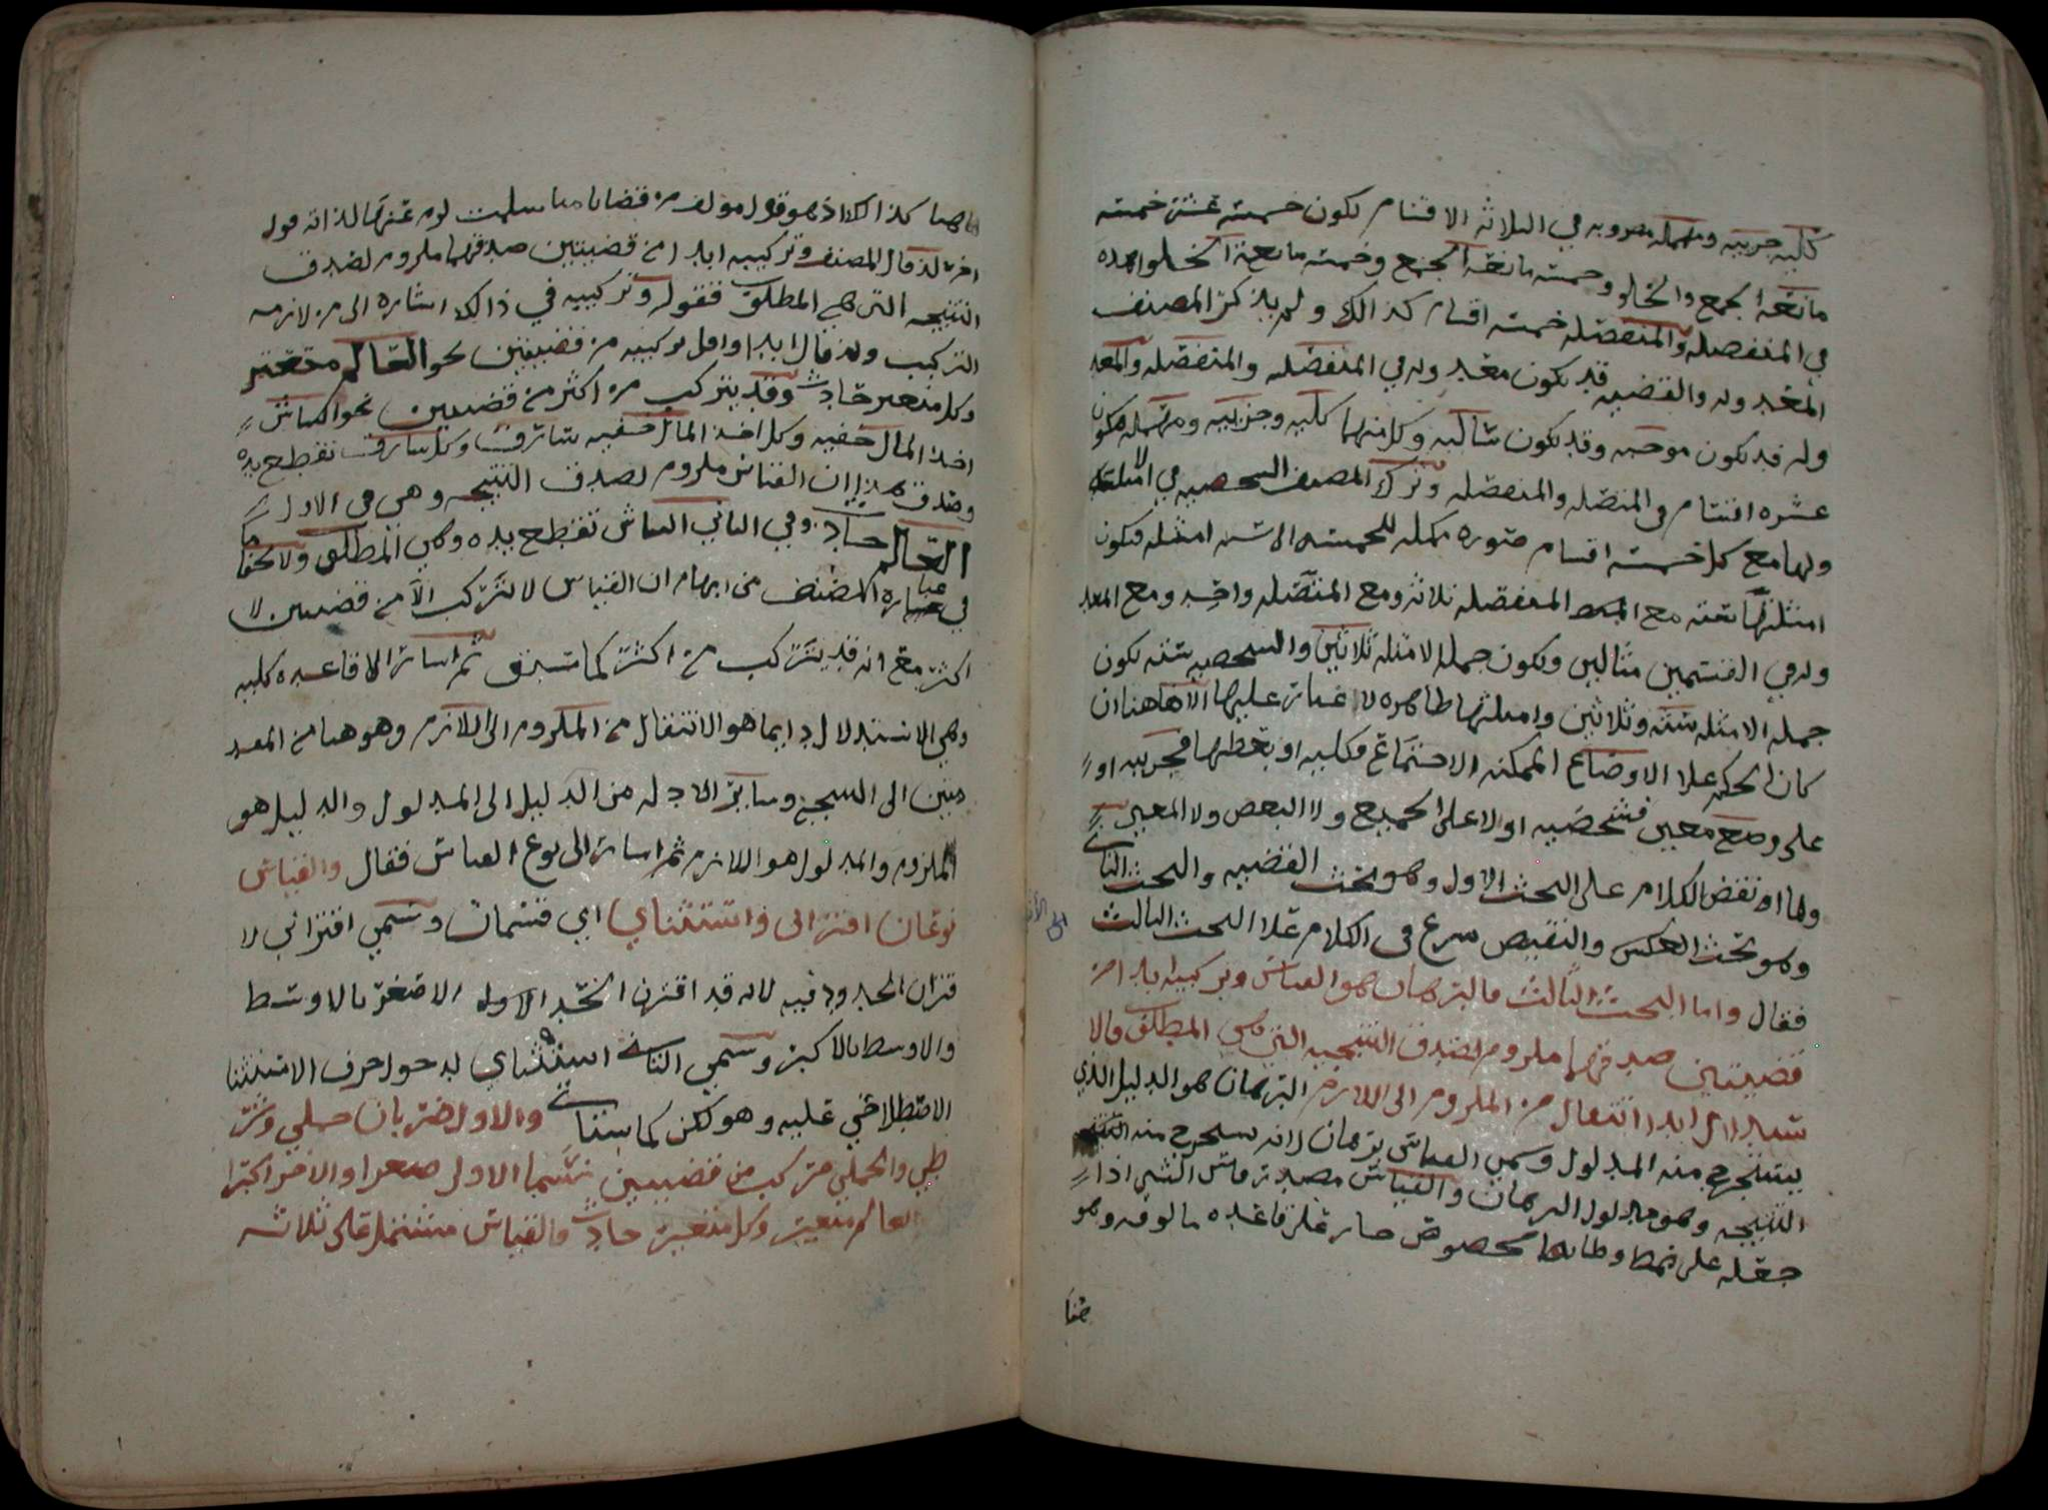 كليه جزييه ومهمله مضروبه في الثلاثه الاقسام تكون خمسه عشر خمسه
مانعة الجمع والخلو وخمسه مانعة الجمع وخمسه مانعة الخلو وهذه
في المنفصله والمتصله خمسه اقسام كذالك ولم يذكر المصنف
المعدوله والقضيه قد تكون معدوله في المتصله والمنفصله والمعد
وله قد تكون موجبه وقد تكون سالبه وكل منهما كليه وجزييه ومهمله فتكون
عشره اقسام في المتصله والمنفصله وترك المصنف الشخصيه في الامثله
ولها مع كل خمسه اقسام صوره مكمله للخمسه الا ستة امثله فتكون
امثلتها ستة مع المنفصله ثلاثه ومع المتصله واحد ومع المعد
وله في القسمين مثالين وتكون جملة الامثله ثلاثين والشخصيه سته تكون
جملة الامثله سته وثلاثين وامثلتها ظاهره لا غبار عليها الا هاهنا ان
كان الحكم علا الاوضاع الممكنه الاجتماع فكليه او بعضها فجزييه او
على وضع معين فشخصيه او لا على الجميع ولا البعض ولا المعين
ولما انقضى الكلام على البحث الاول وهو بحث القضيه والبحث الثاني
وهو بحث العكس والنقيض شرع في الكلام علا البحث الثالث
فقال واما البحث الثالث فالبرهان هو القياس وتركيبه ابدا من
قضيتين صدقهما ملزوم لصدق النتيجه التي هي المطلوب والا
ستدلال ابدا انتقال من الملزوم الى اللازم البرهان هو الدليل الذي
يستخرج منه المدلول وسمي القياس برهان لانه يستخرج منه النتيجه
النتيجه وهو مدلول البرهان والقياس مصدر قاس الشي اذا
جعله على نمط وطابقه مخصوص صار على قاعده مالوفه وهو
هنا
هاهنا كذالك اذ هو قول مولف من قضايا متا سلمت لزم عنها لذاته قول
اخر لذ قال المصنف وتركيبه ابدا من قضيتين صدقهما ملزوم لصدق
النتيجه التي هي المطلوب فقوله وتركيبه في ذالك اشاره الى من لازمه
التركيب ولذ قال ابدا واقل تركيبه من قضيتين نحو العالم متغير
وكل متغير حادث وقد يتركب من اكثر من قضيتين نحو النباش
اخذ المال خفيه وكل اخذ المال خفيه سارق وكل سارق تقطع يده
وصدق هذا ان القياس ملزوم لصدق النتيجه وهي في الاول
العالم حادث وفي الثاني النباش تقطع يده وهي المطلوب ولا يخفا ما
في عباره المصنف من ابهام ان القياس لا يتركب الا من قضيتين لا
اكثر مع انه قد يتركب من اكثر كما سبق ثم اشار الا قاعده كليه
وهي الاستدلال دايما هو الانتقال من الملزوم الى اللازم وهو هنا من المقد
متين الى النتيجه وساير الادله من الدليل الى المدلول والدليل هو
الملزوم والمدلول هو اللازم ثم اشار الى نوع القياس فقال والقياس
نوعان اقتراني واستثناي اي قسمان وسمي اقتراني لا
قتران الحدود فيه لانه قد اقترن الحد الاول الاصغر بالاوسط
والاوسط بالاكبر وسمي الثاني استثناي لدخول حرف الاستثنا
الاصطلاحي عليه وهو لكن كما سياتي والاول ضربان حملي وشر
طي والحملي مركب من قضيتين تسما الاولى صغرا والاخرا كبرا
العالم متغير وكل متغير حادث والقياس مشتمل على ثلاثه